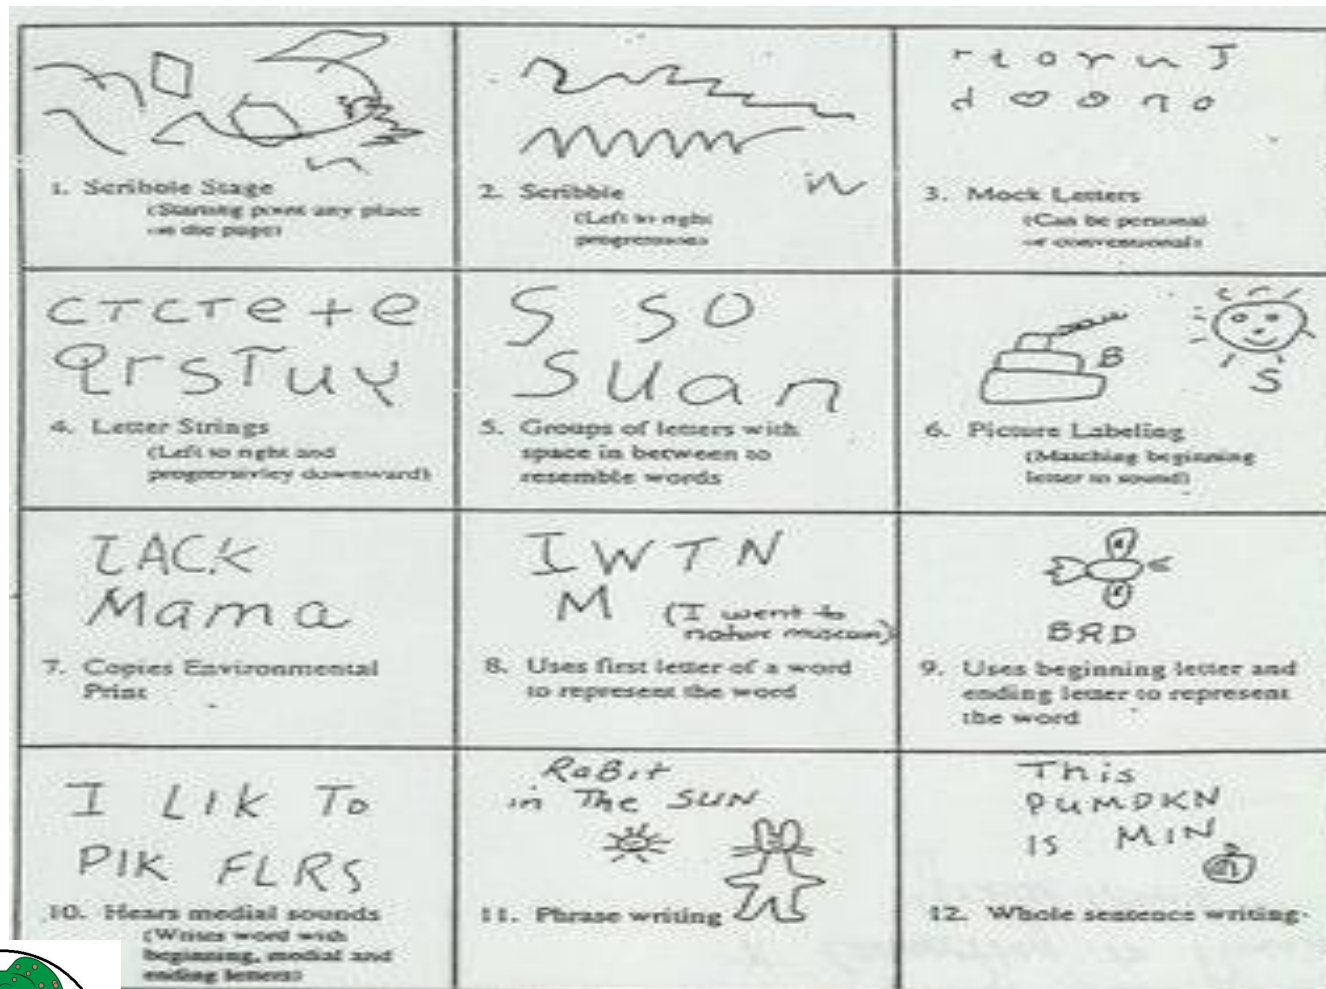 r t o r u J
d o o n o
1. Scribble Stage
(Starting point any place
on the page)
2. Scribble
(Left to right
progression)
3. Mock Letters
(Can be personal
or conventional)
C T C T e t e
Q r S T u y
4. Letter Strings
(Left to right and
progressivley downward)
S SO
S u a n
5. Groups of letters with
space in between to
resemble words
B
S
6. Picture Labeling
(Matching beginning
letter to sound)
ZACK
Mama
7. Copies Environmental
Print
I W T N
M (I went to
nature museum)
8. Uses first letter of a word
to represent the word
BRD
9. Uses beginning letter and
ending letter to represent
the word
I LIK To
PIK FLRS
10. Hears medial sounds
(Writes word with
beginning, medial and
ending letters)
RaBit
in The SUN
11. Phrase writing
This
PUMPKN
IS MIN
12. Whole sentence writing.